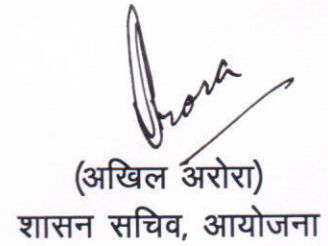 Arora
(अखिल अरोरा)
शासन सचिव, आयोजना